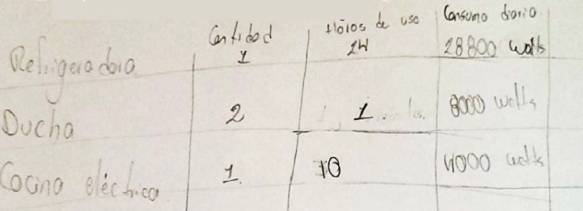 Cantidad Horas de uso Consumo diario
Refrigeradora 1 24 28800 watts
Ducha 2 1 8000 watts
Cocina eléctrica 1 10 4000 watts